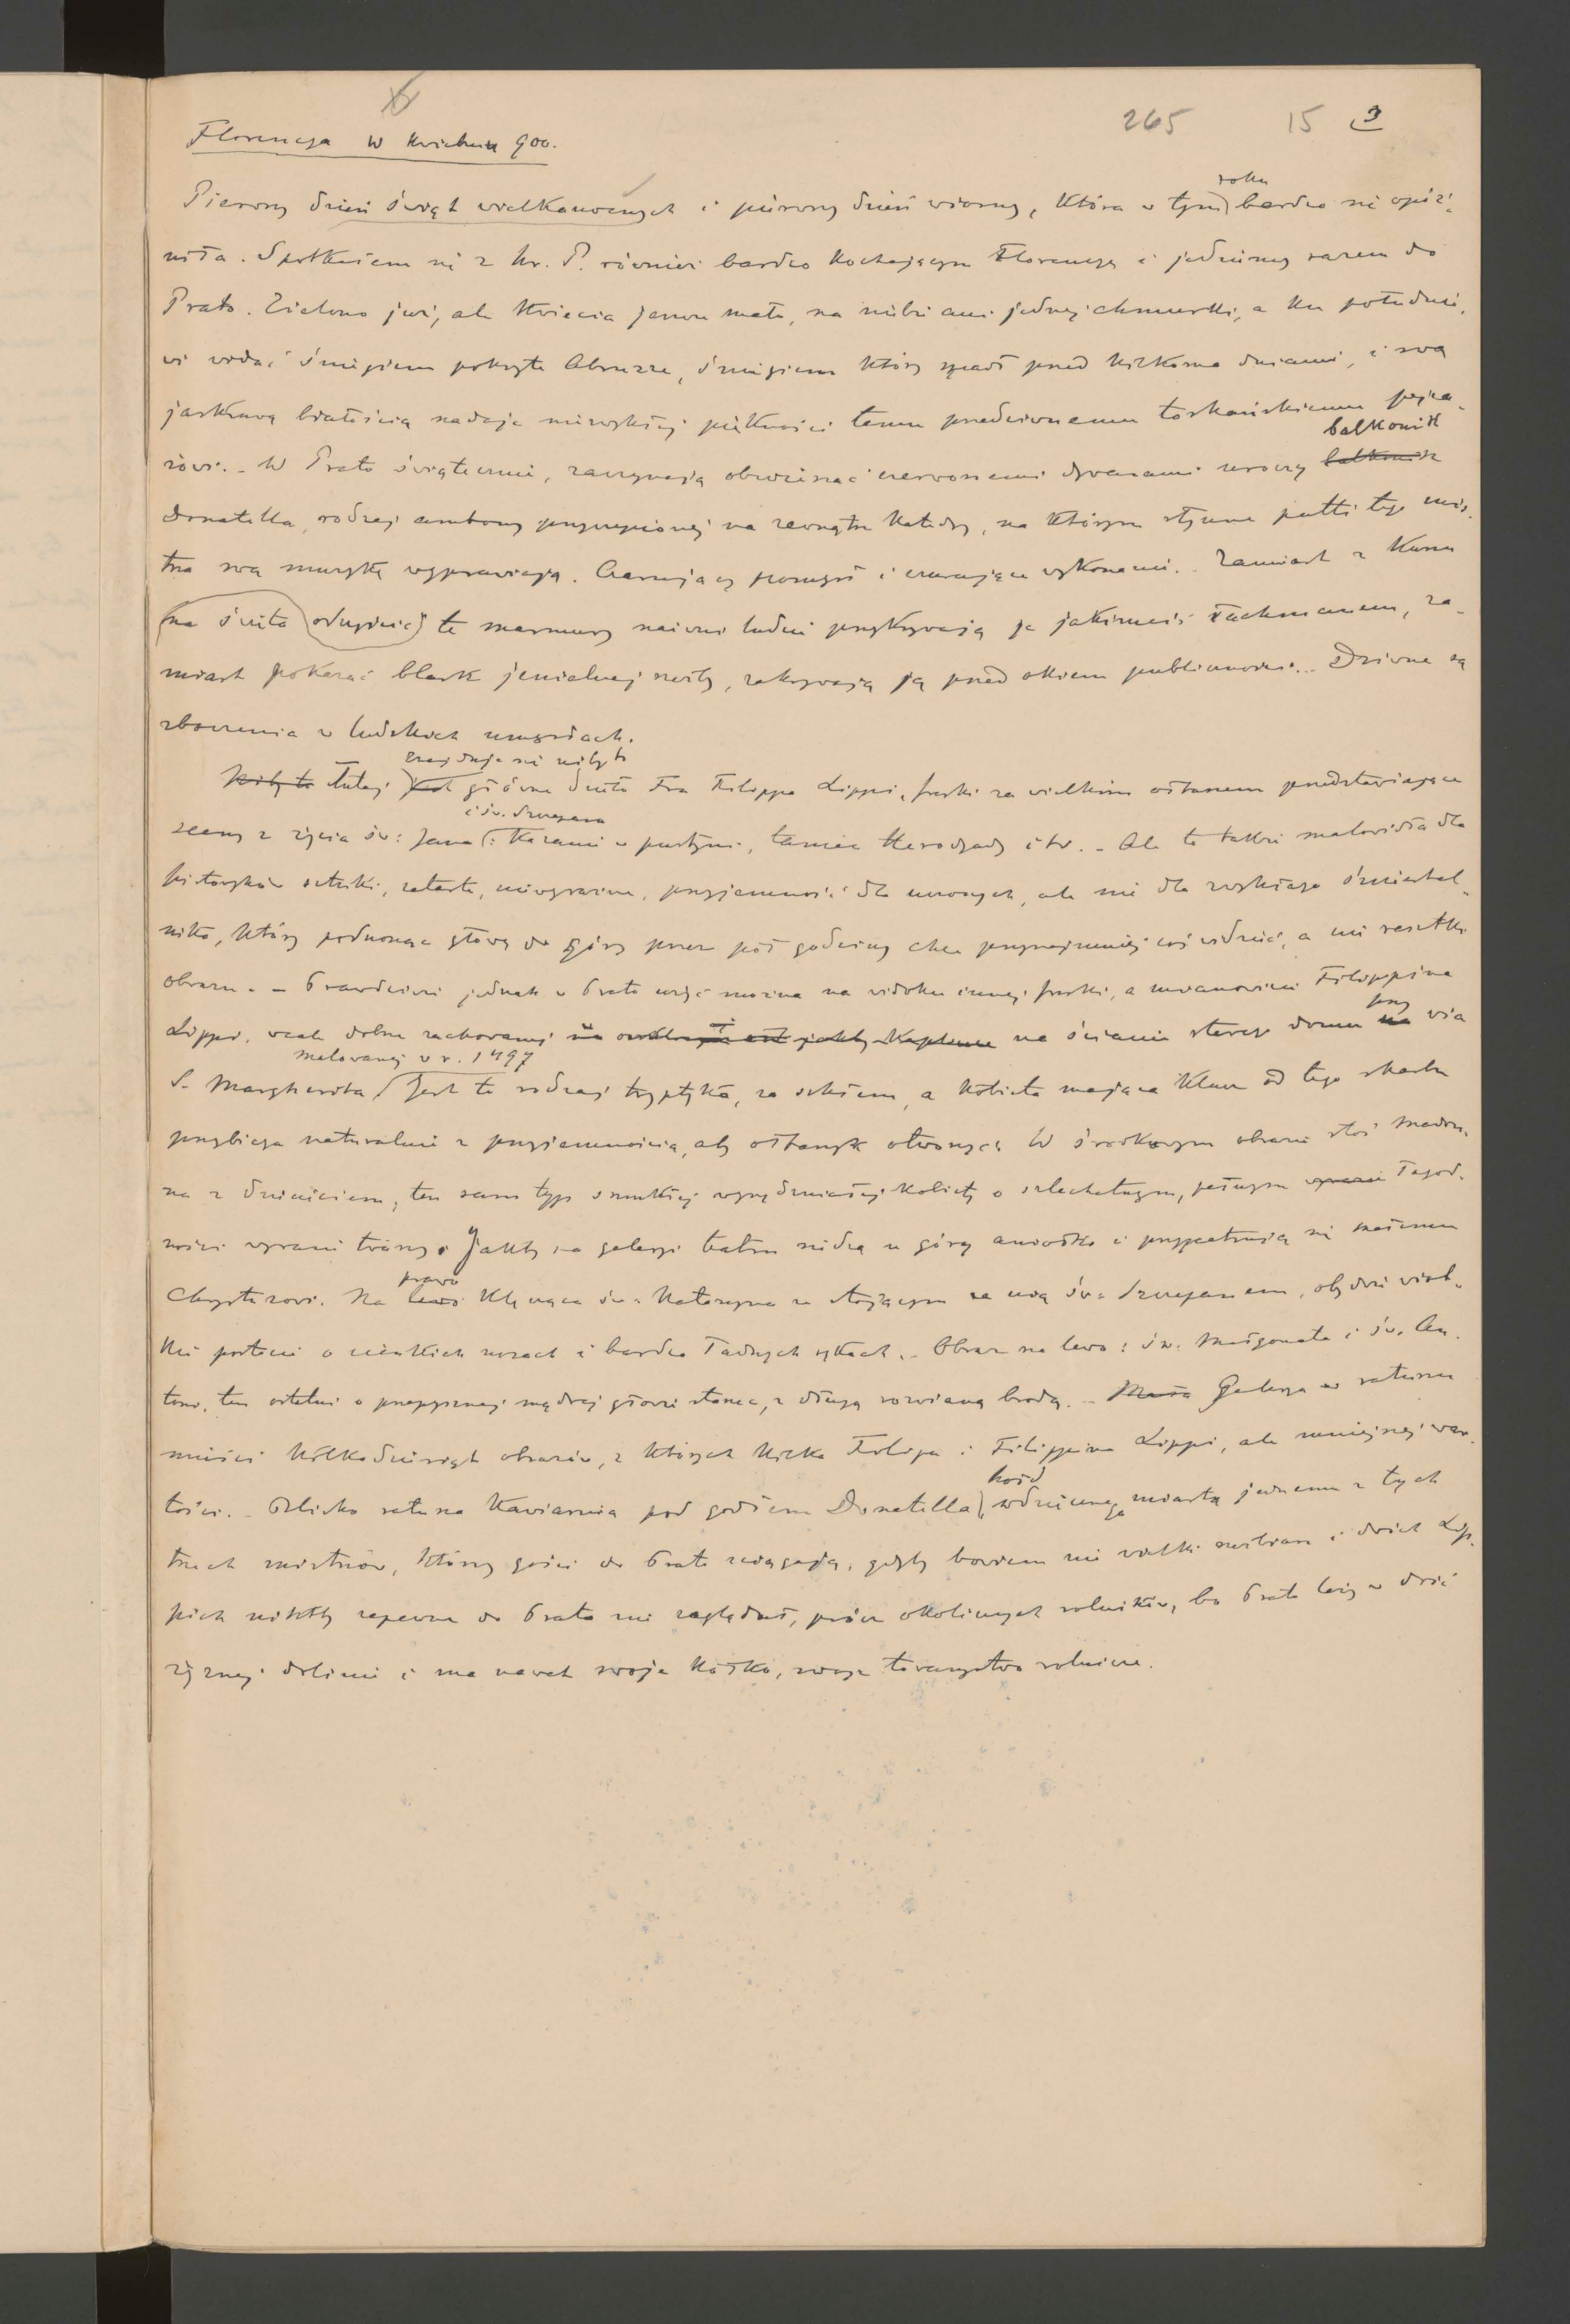 265 15 3
Florencya w kwietniu 900.
roku
Pierwszy dzień świąt wielkanocnych i pierwszy dzień wiosny, która w tym bardzo się opóź-
niła. Spotkałem się z hr. P. również bardzo kochającym Florencyę i jedziemy razem do
Prato. Zielono już, ale kwiecia jeszcze mało, na niebie ani jednej chmurki, a ku południo-
wi widać śniegiem pokryte Abruzze, śniegiem który spadł przed kilkoma dniami, i swą
jaskrawą białością nadaje niezwykłej piękności temu przedziwnemu toskańskiemu pejza-
balkonik
żowi. - W Prato świątecznie, zaczynają obwieszać czerwonemi dywanami uroczy balkonik
Donatella, rodzaj ambony przyczepionej na zewnątrz katedry, na którym słynne putti tego mis-
trza swą muzykę wyprawiają. Czarujący pomysł i czarujące wykonanie. - Zamiast z kurzu
(na święta oczyścić) te marmury naiwni ludzie przykrywają je jakimeiś łachmanem, za-
miast pokazać blask jenialnej rzeźby, zakrywają ją przed okiem publiczności... Dziwne są
zboczenia w ludzkich umysłach.
znajduje się niby to
Niby to tutaj jest główne dzieło Fra Filippa Lippi, freski za wielkim ołtarzem przedstawiające
i św. Szczepana
sceny z życia św: Jana: Kazanie w pustyni, taniec Herodyady itd. - Ale to także malowidła dla
historyków sztuki, zatarte, niewyraźne, przyjemność dla uczonych, ale nie dla zwykłego śmiertel-
nika, który podnosząc głowę do góry przez pół godziny chce przynajmniej coś widzieć, a nie resztki
obrazu. - Prawdziwie jednak w Prato użyć można na widoku innej freski, a mianowicie Filippina
przy
Lippi, wcale dobrze zachowanej na ścianie starego domu na via
malowanej w r. 1497
S. Margherita. Jest to rodzaj tryptyka, za szkłem, a kobieta mająca klucz od tego skarbu
przybiega naturalnie z przyjemnością, aby ołtarzyk otworzyć. W środkowym obrazie stoi Madon-
na z dziecięciem, ten sam typ smukłej wynędzniałej kobiety o szlachetnym, pełnym wyrazie łagod-
ności wyrazie twarzy. Jakby na galeryi teatru siedzą u góry aniołki i przypatrują się małemu
prawo
Chrystusowi. Na lewo klęcząca św. Katarzyna ze stojącym za nią św. Szczepanem, obydwie wiel-
kie postacie o cienkich nosach i bardzo ładnych rękach. - Obraz na lewo: św. Małgorzata i św. An-
toni, ten ostatni o przepysznej mądrej głowie starca, z długą rozwianą brodą. - Mała Galerya w ratuszu
mieści kilkadziesiąt obrazów, z których kilka Filipa i Filippina Lippi, ale mniejszej war-
hołd
tości. - Blisko ratusza kawiarnia pod godłem Donatella, wdzięcznego miasta jednemu z tych
trzech mistrzów, którzy gości do Prato ściągają, gdyby bowiem nie wielki rzeźbiarz i dwóch Lip-
pich niktby zapewne do Prato nie zaglądał, prócz okolicznych rolników, bo Prato leży w dość
żyznej dolinie i ma nawet swoje kółko, swoje towarzystwo rolnicze.